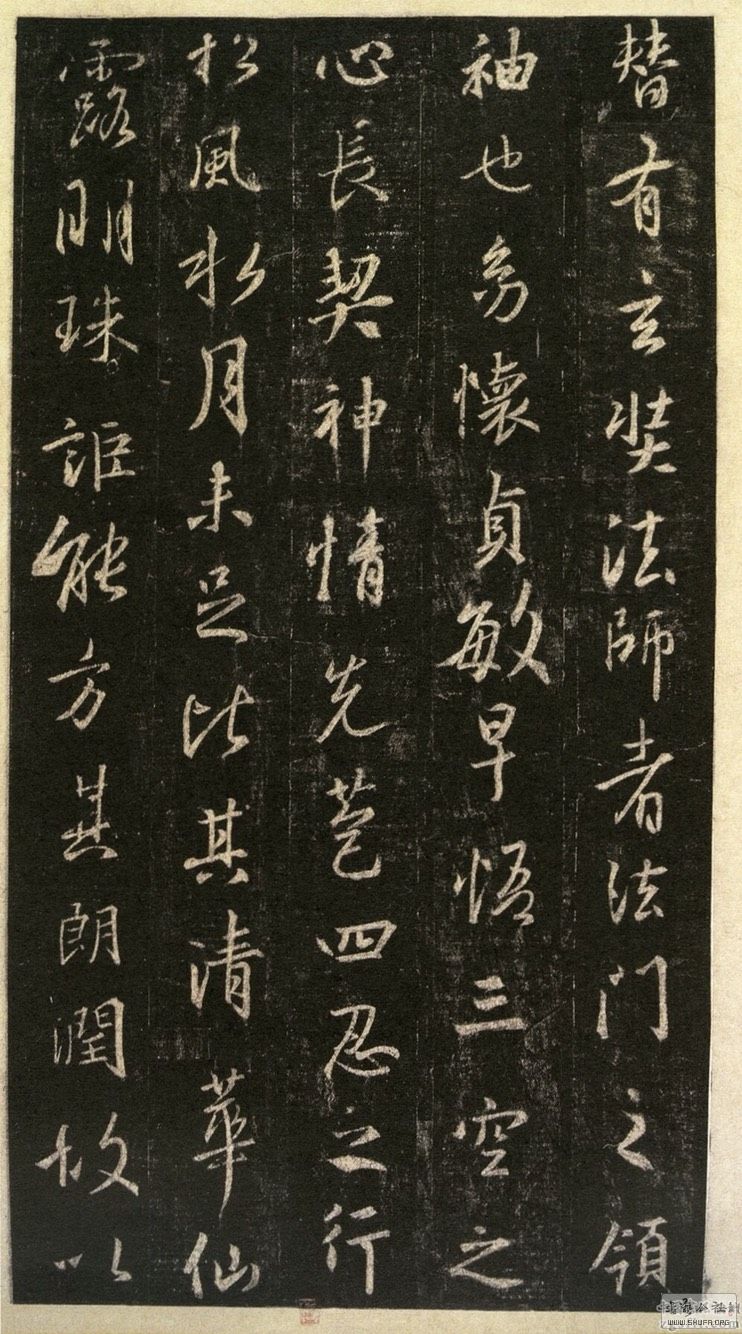 替有玄奘法師者法門之領
袖也㓜懷貞敏早悟三空之
心長契神情先苞四忍之行
松風水月未足比其清華仙
露明珠詎能方其朗潤故以
WWW.SHUFA.ORG